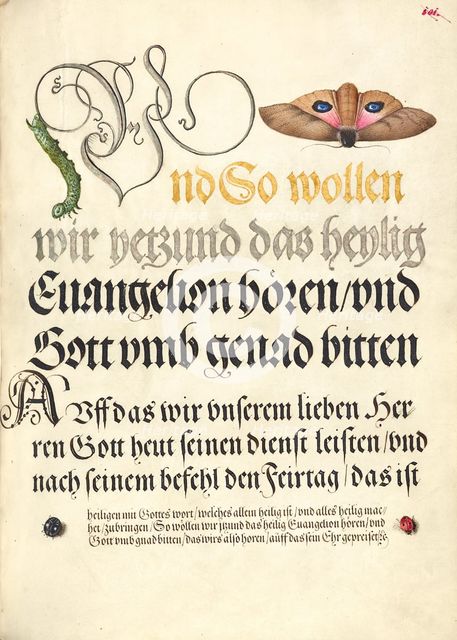 ioi.
Und So wollen
wir yetzund das heylig
Euangelion hören/vnd
Gott vmb genad bitten
AVff das wir vnserem lieben Her-
ren Gott heut seinen dienst leisten/vnd
nach seinem befehl den Feirtag/das ist
heiligen mit Gottes wort/welches allein heilig ist/vnd alles heilig ma-
chet/zubringen/So wöllen wir jzund das heilig Euangelion hören/vnd
Gott vmb gnad bitten/das wirs also hören/auff das sein Ehr gepreiset